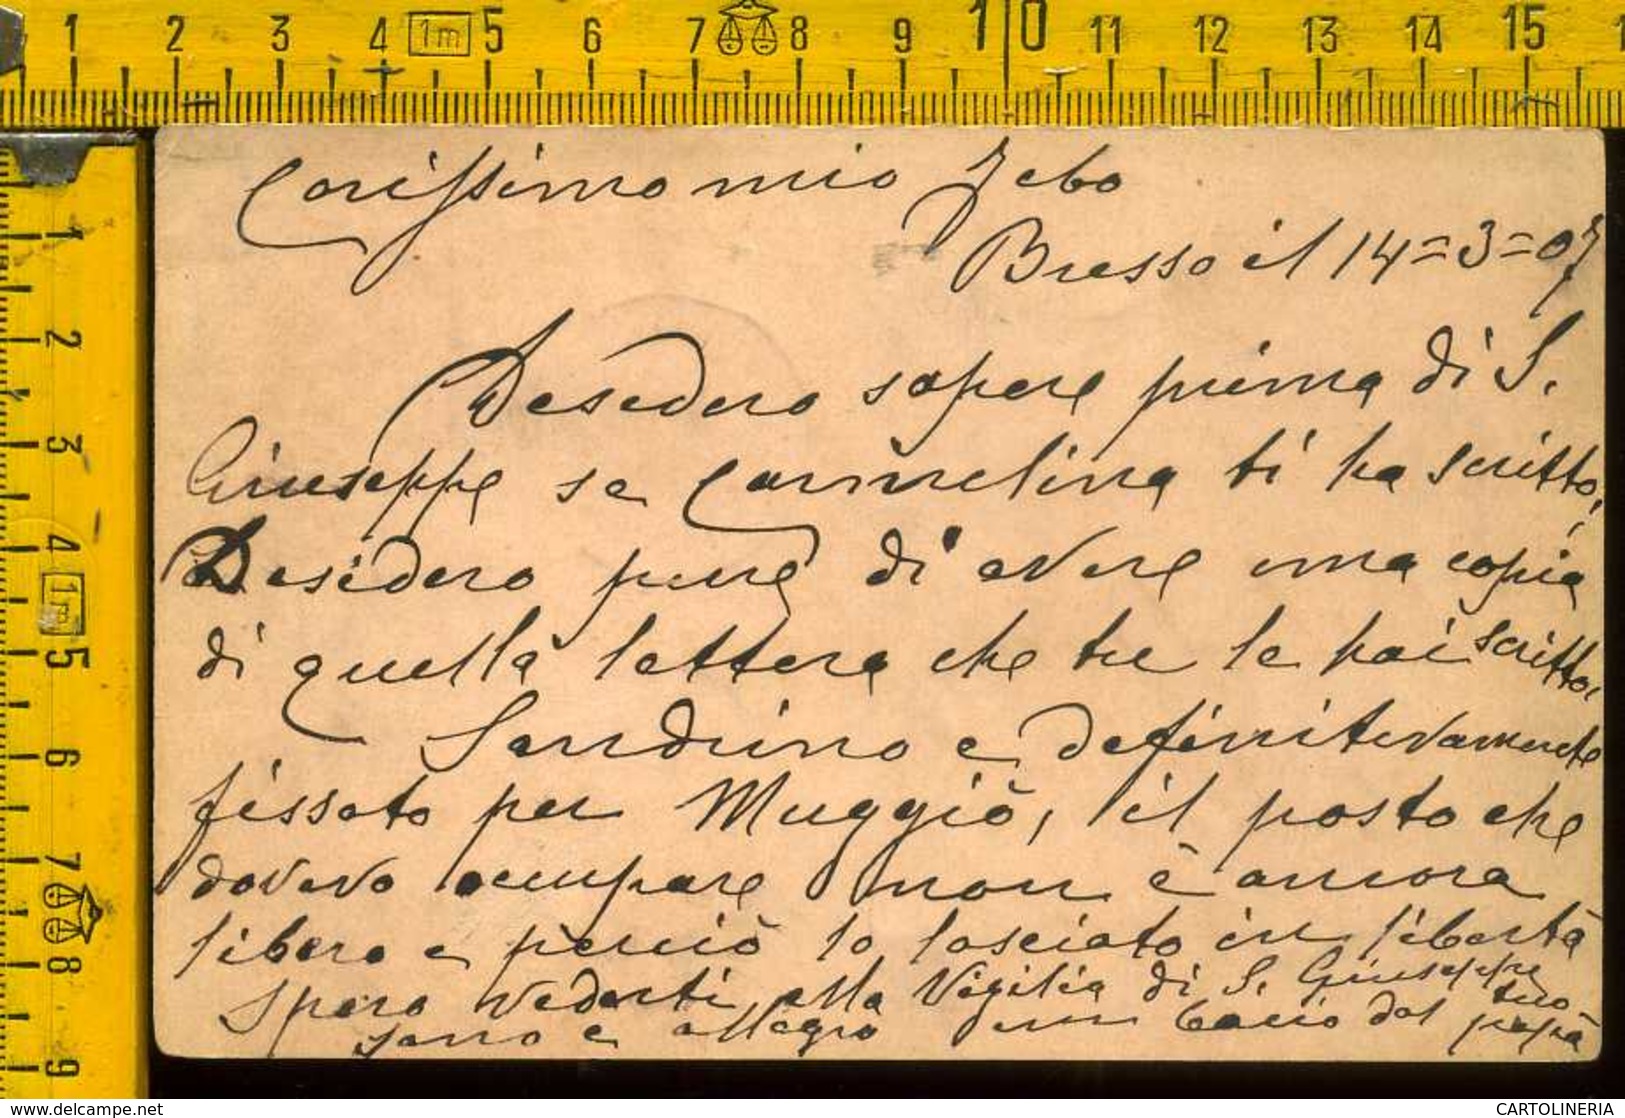 1 2 3 4 1m 5 6 7 8 9 10 11 12 13 14 15 1
1 2 3 4 1m 5 6 7 8 9
Carissimo mio Zebo
Bresso il 14=3=07
Desidero sapere prima di S.
Giuseppe se Carmelina ti ha scritto,
Desidero pure di avere una copia
di quella lettera che tu le hai scritto.
Sandrino e definitivamente
fissato per Muggiò, il posto che
dovevo occupare non è ancora
libero e perciò lo lasciato in libertà
Spero vederti alla Vigilia di S. Giuseppe
sano e allegro un bacio dal tuo papà
www.delcampe.net
CARTOLINERIA